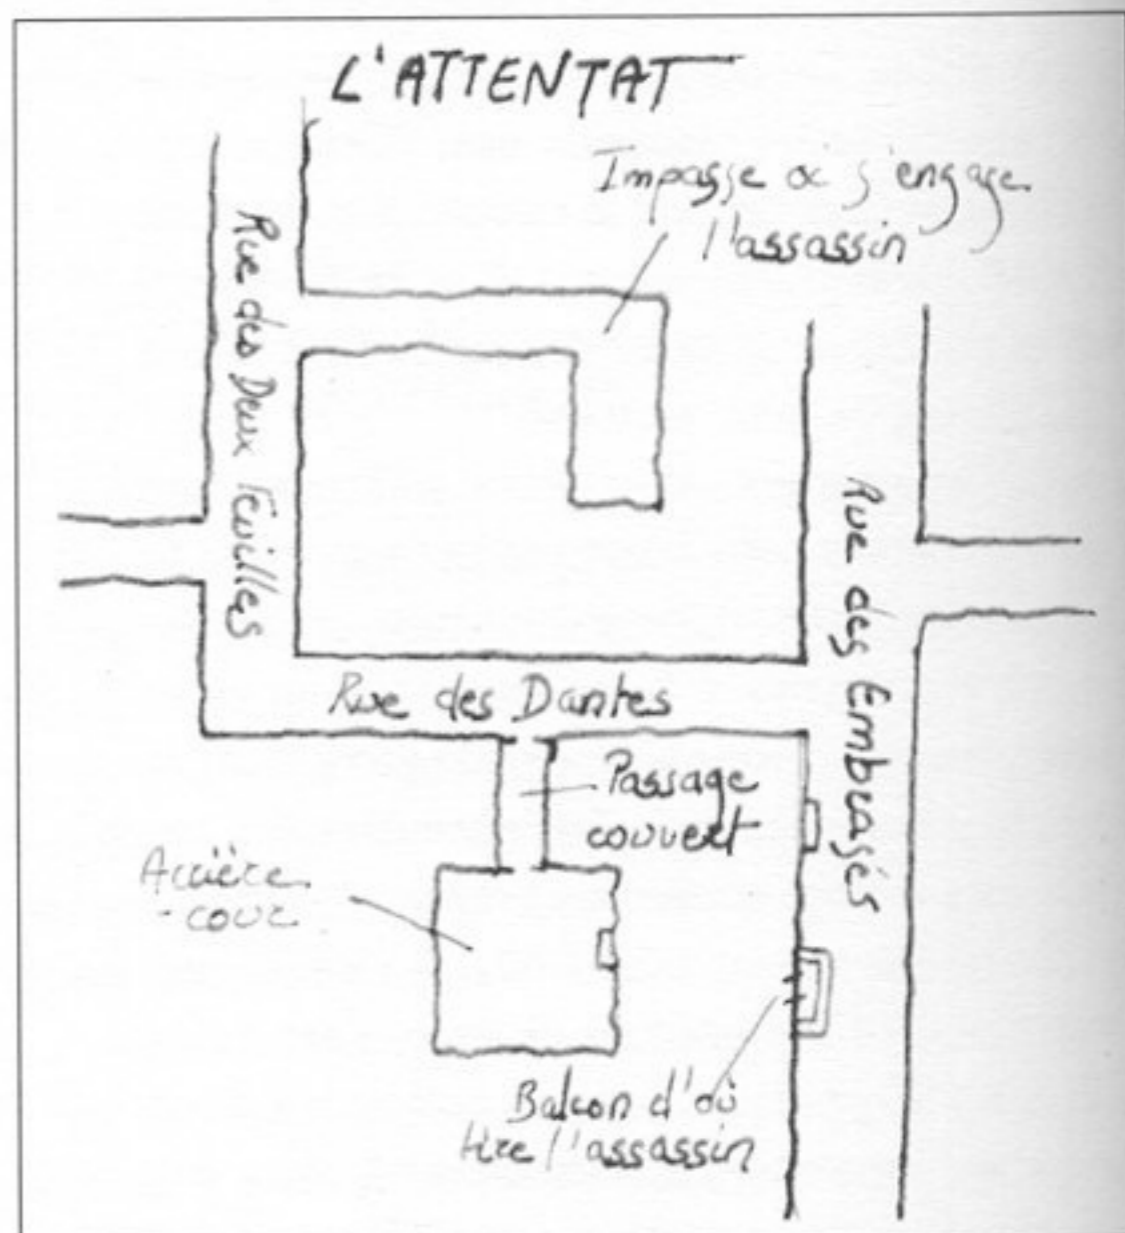 L'ATTENTAT
Impasse où s'engage
l'assassin
Rue des Deux Feuilles
Rue des Embrasés
Rue des Dantes
Passage
couvert
Arrière
-cour
Balcon d'où
tire l'assassin